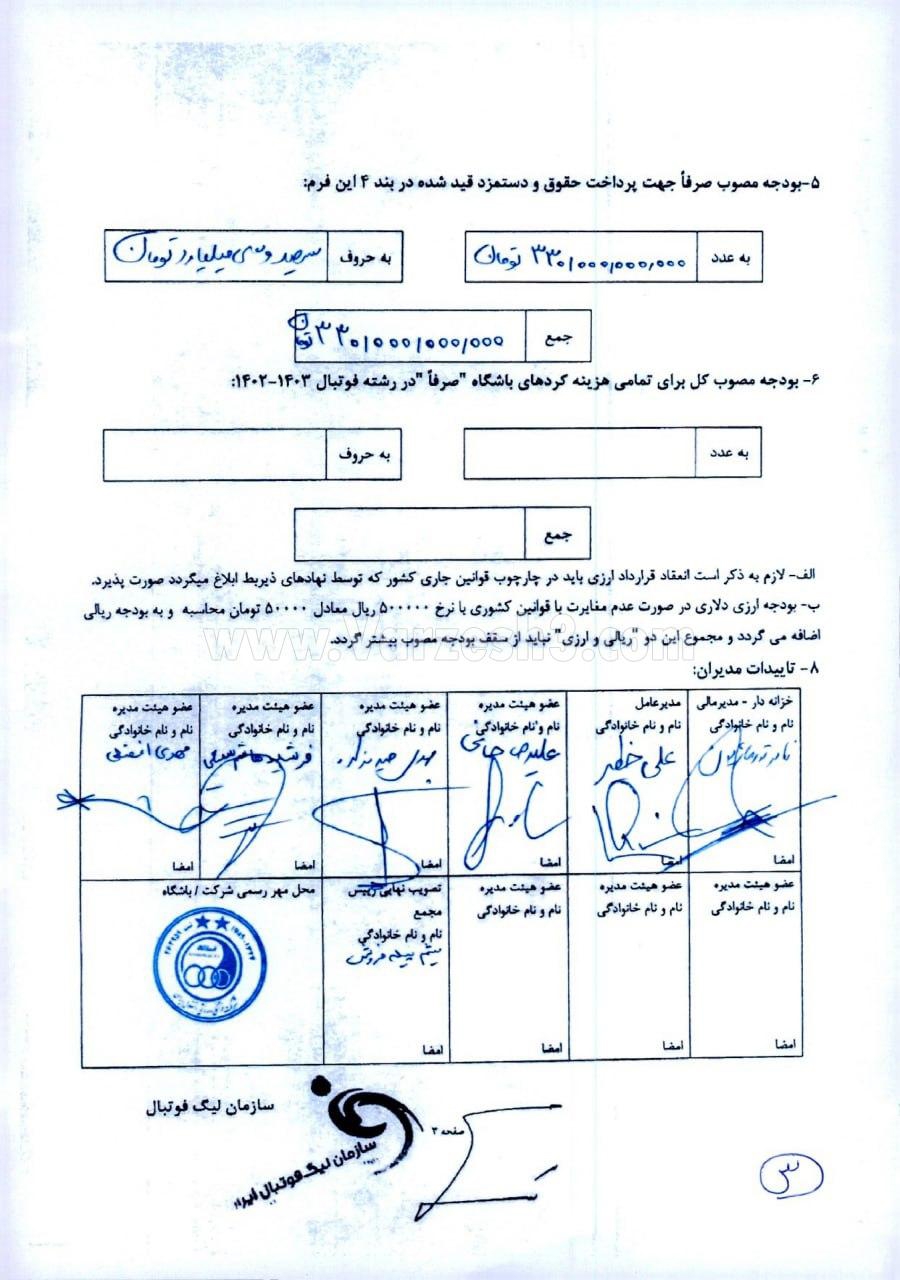 ۵-بودجه مصوب صرفاً جهت پرداخت حقوق و دستمزد قید شده در بند ۴ این فرم:
به عدد
۳۳۰/۰۰۰/۰۰۰/۰۰۰ تومان
به حروف
سیصد و سی میلیارد تومان
جمع
۳۳۰/۰۰۰/۰۰۰/۰۰۰ تومان
۶- بودجه مصوب کل برای تمامی هزینه کردهای باشگاه "صرفاً "در رشته فوتبال ۱۴۰۳-۱۴۰۲:
به عدد
به حروف
جمع
الف- لازم به ذکر است انعقاد قرارداد ارزی باید در چارچوب قوانین جاری کشور که توسط نهادهای ذیربط ابلاغ میگردد صورت پذیرد.
ب- بودجه ارزی دلاری در صورت عدم مغایرت با قوانین کشوری با نرخ ۵۰۰۰۰۰ ریال معادل ۵۰۰۰۰ تومان محاسبه و به بودجه ریالی
اضافه می گردد و مجموع این دو "ریالی و ارزی" نباید از سقف بودجه مصوب بیشتر گردد.
www.Varzesh3.com
۸- تاییدات مدیران:
خزانه دار - مدیرمالی
نام و نام خانوادگی
امضا
مدیرعامل
نام و نام خانوادگی
علی خطیر
امضا
عضو هیئت مدیره
نام و نام خانوادگی
امضا
عضو هیئت مدیره
نام و نام خانوادگی
مهدی
امضا
عضو هیئت مدیره
نام و نام خانوادگی
فرشید
امضا
عضو هیئت مدیره
نام و نام خانوادگی
مهدی افضلی
امضا
عضو هیئت مدیره
نام و نام خانوادگی
امضا
عضو هیئت مدیره
نام و نام خانوادگی
امضا
عضو هیئت مدیره
نام و نام خانوادگی
امضا
تصویب نهایی رییس
مجمع
نام و نام خانوادگی
امضا
محل مهر رسمی شرکت / باشگاه
سازمان لیگ فوتبال
صفحه ۳
سازمان لیگ فوتبال ایران
۳